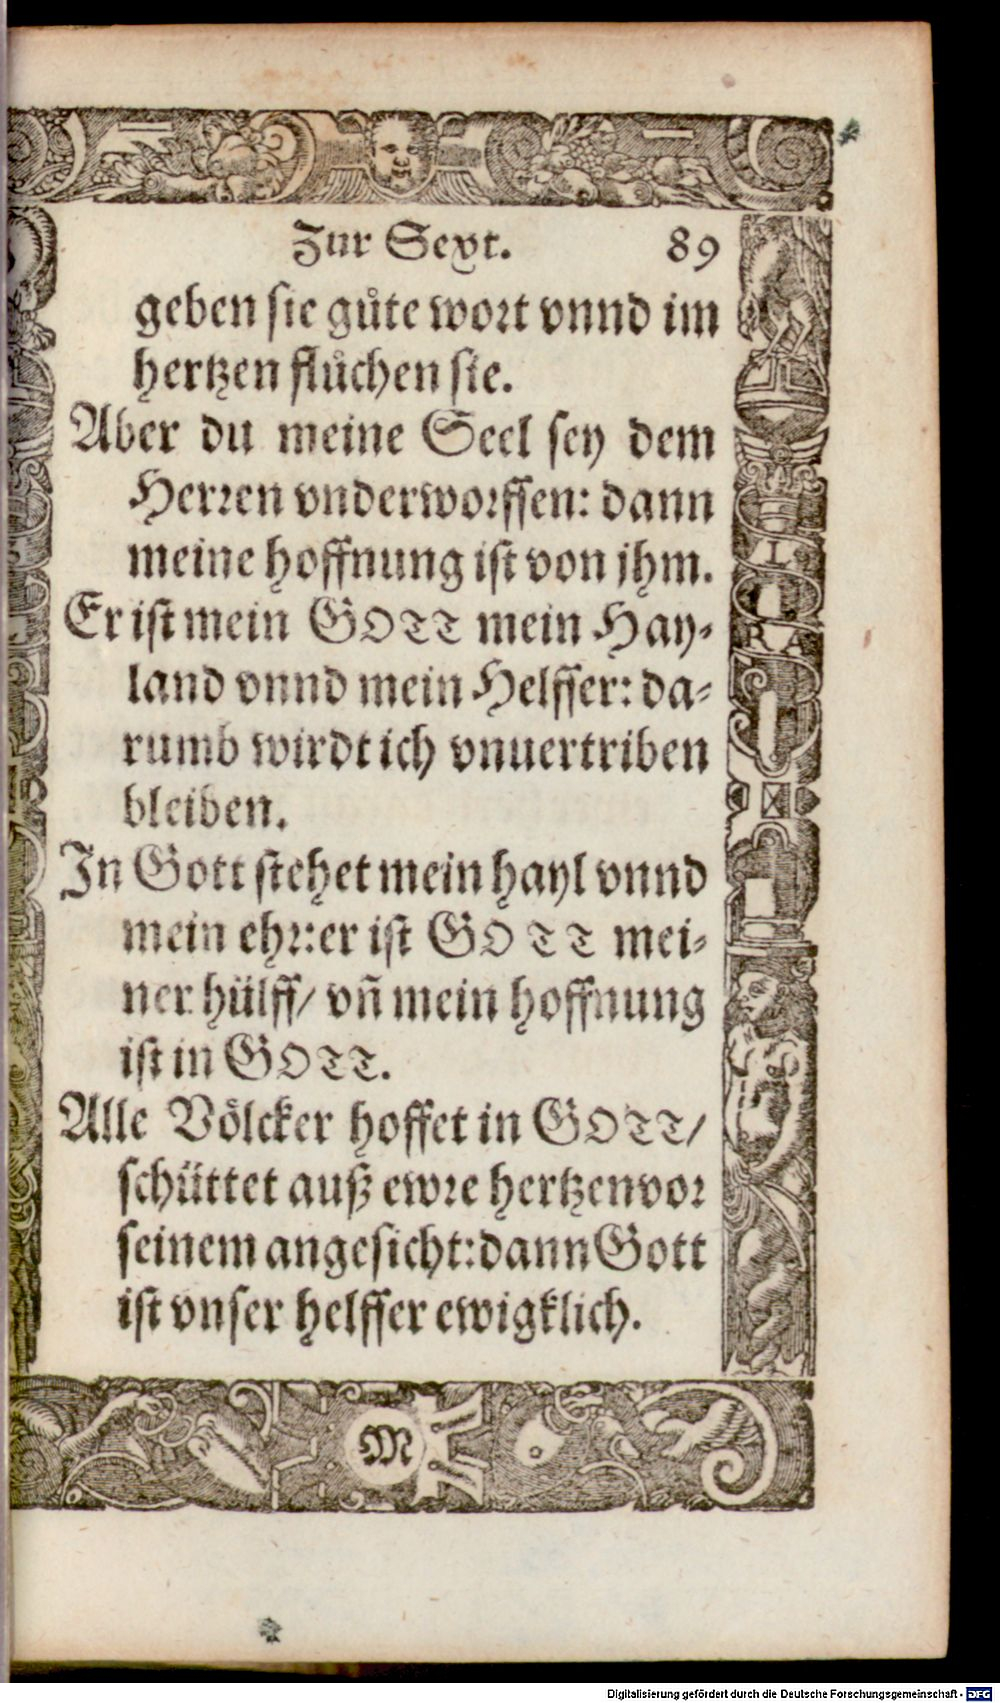 Zur Sext. 89
geben sie guͦte wort vnnd im
hertzen fluͦchen sie.
Aber du meine Seel sey dem
Herren vnderworffen: dann
meine hoffnung ist von jhm.
Er ist mein GOTT mein Hay-
land vnnd mein Helffer: da-
rumb wirdt ich vnuertriben
bleiben.
In Gott stehet mein hayl vnnd
mein ehr: er ist GOTT mei-
ner hülff/ vñ mein hoffnung
ist in GOTT.
Alle Völcker hoffet in GOTT/
schüttet auß ewre hertzen vor
seinem angesicht: dann Gott
ist vnser helffer ewigklich.
L
RA
M
Digitalisierung gefördert durch die Deutsche Forschungsgemeinschaft - DFG